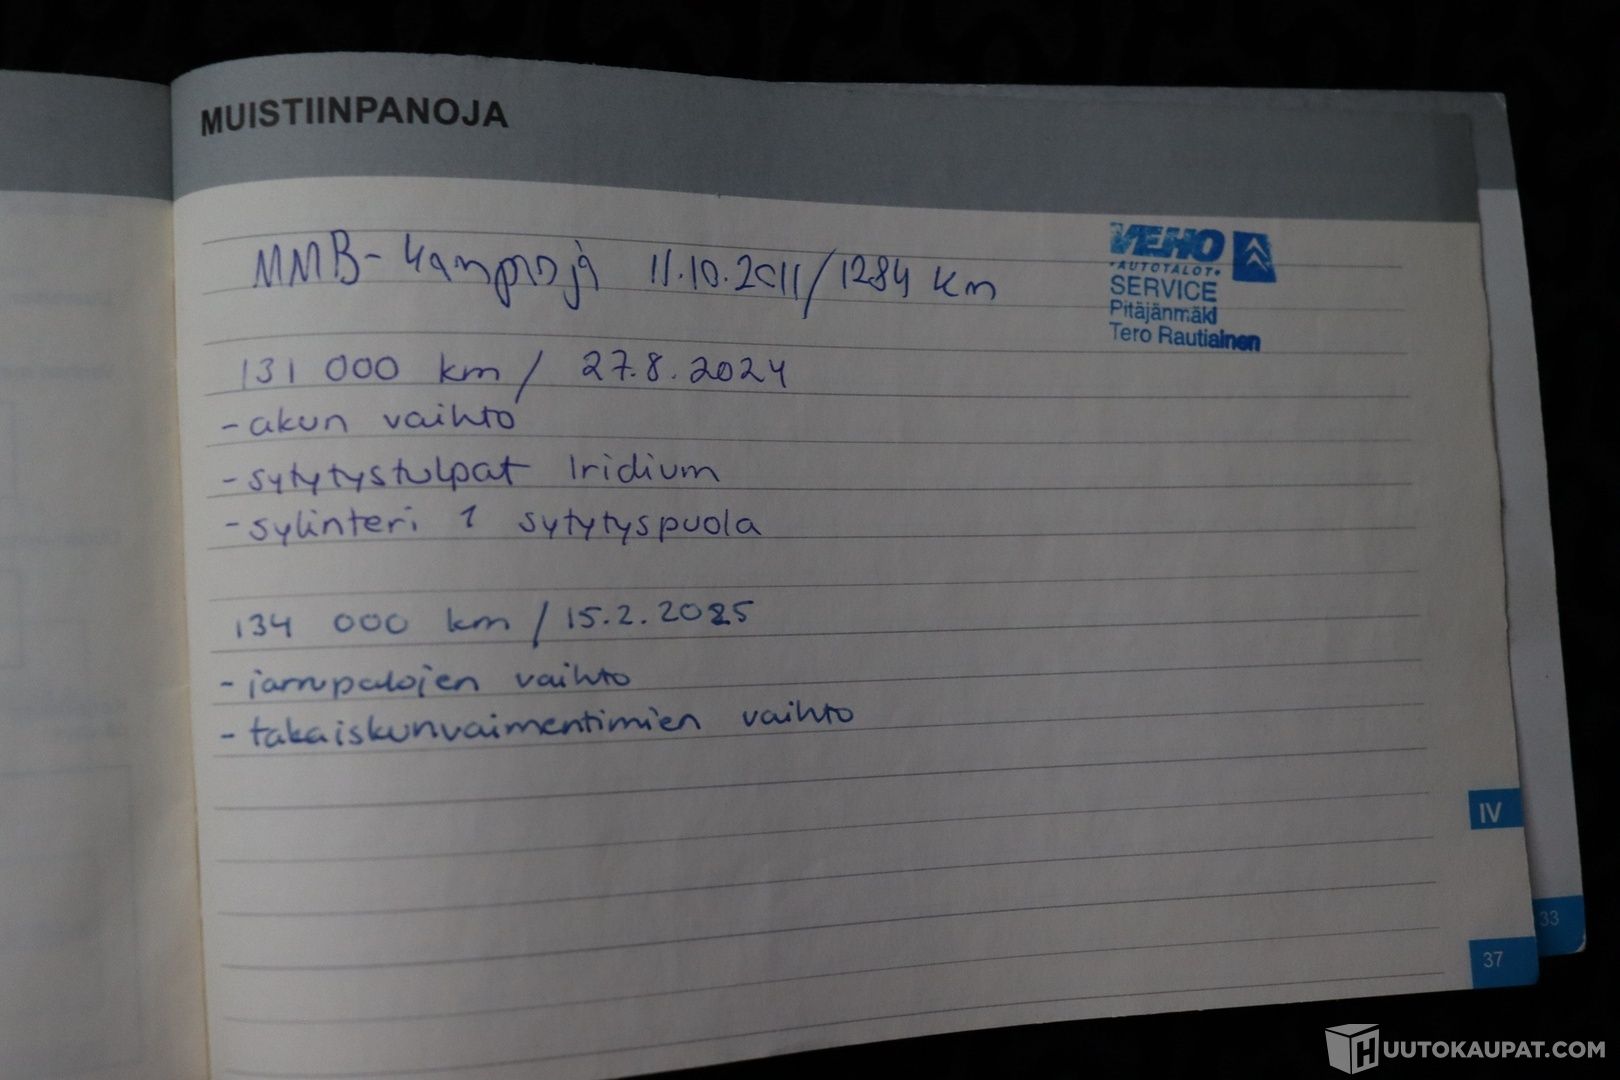 MUISTIINPANOJA
MMB- 11.10.2011/1284 km
VEHO
•AUTOTALOT•
SERVICE
Pitäjänmäki
Tero Rautiainen
131 000 km / 27.8.2024
-akun vaihto
-sytytystulpat Iridium
-sylinteri 1 sytytyspuola
134 000 km / 15.2.2025
-jarrupalojen vaihto
-takaiskunvaimentimien vaihto
IV
33
37
HUUTOKAUPAT.COM